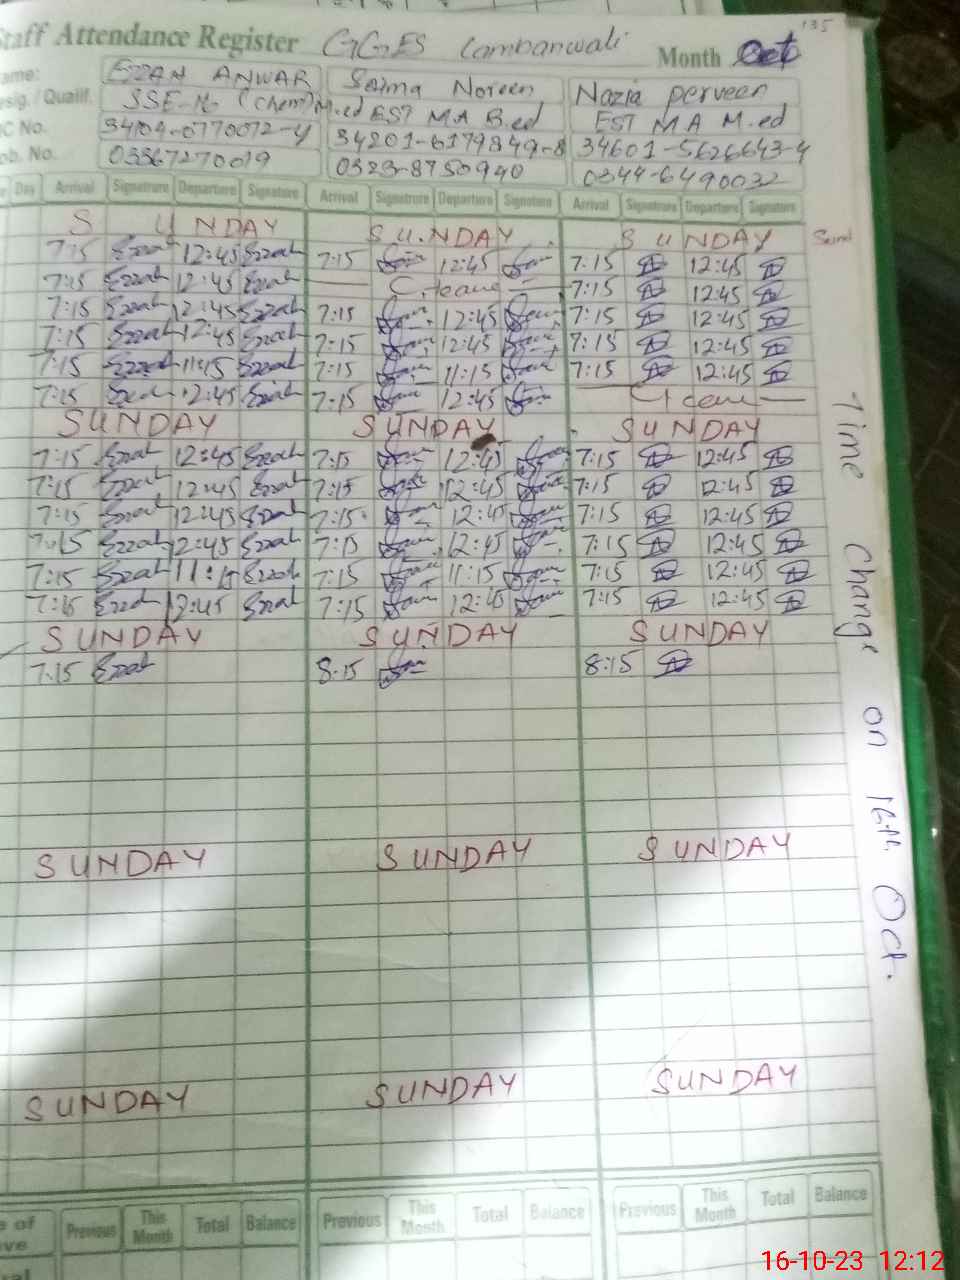 Staff Attendance Register GGES Lambanwali Month Oct 135
ame: EZZAH ANWAR Saima Noreen Nazia Perveen
esig. / Qualif. SSE-IG (Chem) M.ed EST M A B.ed EST M A M.ed
IC No. 34104-0770072-4 34201-6179849-8 34601-5626643-4
ob. No. 03367270019 0323-8750940 0344-6490032
e Day Arrival Signature Departure Signature Arrival Signature Departure Signature Arrival Signature Departure Signature
SUNDAY SUNDAY SUNDAY Sund
7:15 Ezzah 12:45 Ezzah 7:15 12:45 7:15 12:45
7:15 Ezzah 12:45 Ezzah C.leave 7:15 12:45
7:15 Ezzah 12:45 Ezzah 7:15 12:45 7:15 12:45
7:15 Ezzah 12:45 Ezzah 7:15 12:45 7:15 12:45
7:15 Ezzah 11:15 Ezzah 7:15 11:15 7:15 12:45
7:15 Ezzah 12:45 Ezzah 7:15 12:45 C leave
SUNDAY SUNDAY SUNDAY
7:15 Ezzah 12:45 Ezzah 7:15 12:45 7:15 12:45
7:15 Ezzah 12:45 Ezzah 7:15 12:45 7:15 12:45
7:15 Ezzah 12:45 Ezzah 7:15 12:45 7:15 12:45
7:15 Ezzah 12:45 Ezzah 7:15 12:45 7:15 12:45
7:15 Ezzah 11:15 Ezzah 7:15 11:15 7:15 12:45
7:15 Ezzah 12:45 Ezzah 7:15 12:45 7:15 12:45
SUNDAY SUNDAY SUNDAY
7:15 Ezzah 8:15 8:15
SUNDAY SUNDAY SUNDAY
SUNDAY SUNDAY SUNDAY
Time Change on 16th Oct.
e of Previous This Month Total Balance Previous This Month Total Balance Previous This Month Total Balance
ve
16-10-23 12:12